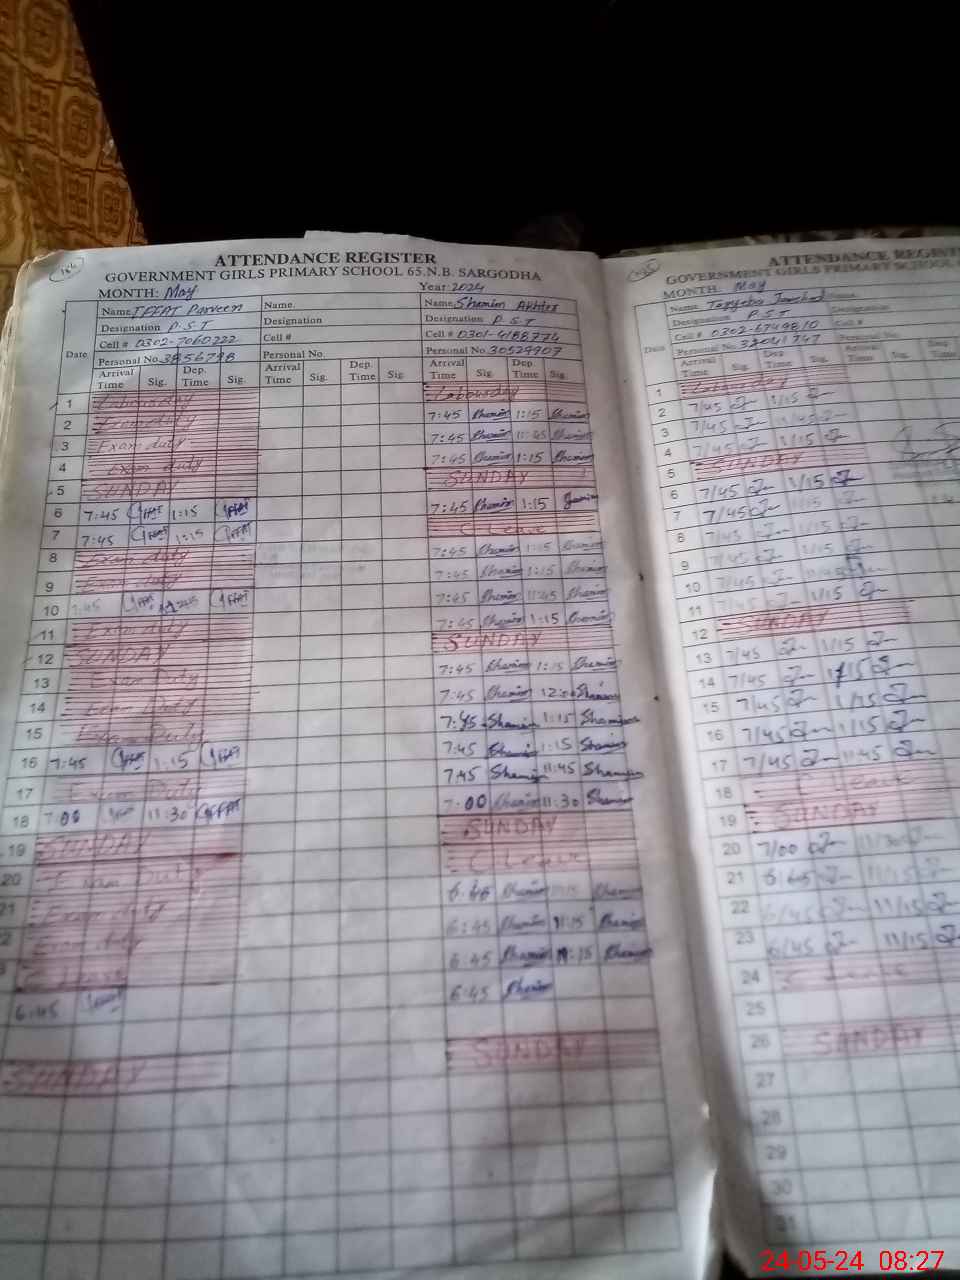 ATTENDANCE REGISTER
GOVERNMENT GIRLS PRIMARY SCHOOL 65.N.B. SARGODHA
MONTH: May Year 2024
Name IFFAT Parveen Name. Name Shamim Akhter
Designation P.S.T Designation Designation P.S.T
Cell # 0302-7060222 Cell # Cell # 0301-4188774
Date Personal No. 3856798 Personal No. Personal No. 30529707
Arrival Time Sig. Dep. Time Sig. Arrival Time Sig. Dep. Time Sig. Arrival Time Sig. Dep. Time Sig.
1 Labourday Labourday
2 Exam duty 7:45 Shamim 1:15 Shamim
3 Exam duty 7:45 Shamim 11:45 Shamim
4 Exam duty 7:45 Shamim 1:15 Shamim
5 SUNDAY SUNDAY
6 7:45 IFFAT 1:15 IFFAT 7:45 Shamim 1:15 Shamim
7 7:45 IFFAT 1:15 IFFAT C Leave
8 Exam duty 7:45 Shamim 1:15 Shamim
9 Exam duty 7:45 Shamim 1:15 Shamim
10 7:45 IFFAT IFFAT 7:45 Shamim 11:45 Shamim
11 Exam duty 7:45 Shamim 1:15 Shamim
12 SUNDAY SUNDAY
13 Exam Duty 7:45 Shamim 1:15 Shamim
14 Exam Duty 7:45 Shamim Shamim
15 Exam Duty 7:45 Shamim 1:15 Shamim
16 7:45 IFFAT 1:15 IFFAT 7:45 Shamim 1:15 Shamim
17 Exam Duty 7:45 Shamim 11:45 Shamim
18 7:00 IFFAT 11:30 IFFAT 7:00 Shamim 11:30 Shamim
19 SUNDAY SUNDAY
20 Exam Duty C Leave
21 Exam duty 6:45 Shamim 11:15 Shamim
Exam duty 6:45 Shamim 11:15 Shamim
C Leave 6:45 Shamim 11:15 Shamim
6:45 IFFAT 6:45 Shamim
SUNDAY SUNDAY
ATTENDANCE
GOVERNMENT GIRLS PRIMARY SCHOOL
MONTH: May
Name
Designation P.S.T Designation
Cell # 0302-6749810 Cell #
Date Personal No.
Arrival Time Sig. Dep. Time Sig.
1 Labourday
2 7/45 1/15
3 7/45 11/45
4 7/45 1/15
5 SUNDAY
6 7/45 1/15
7 7/45
8 7/45 1/15
9 7/45 1/15
10 7/45 11/45
11 7/45 1/15
12 SUNDAY
13 7/45 1/15
14 7/45 1/15
15 7/45 1/15
16 7/45 1/15
17 7/45 11/45
18 C Leave
19 SUNDAY
20 7/00 11/30
21 6/45 11/15
22 6/45 11/15
23 6/45 11/15
24 Leave
25
26 SUNDAY
27
28
29
30
31
24-05-24 08:27